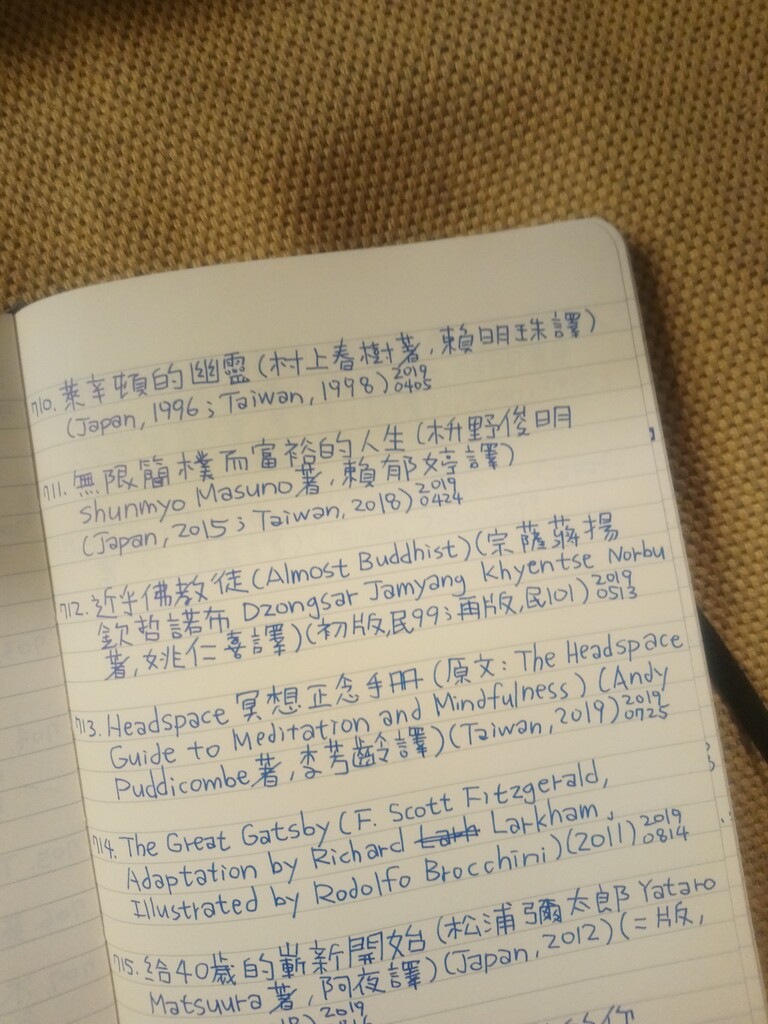 710. 萊辛頓的幽靈(村上春樹著,賴明珠譯)
(Japan, 1996; Taiwan, 1998) 2019 0405
711. 無限簡樸而富裕的人生(枡野俊明
Shunmyo Masuno著,賴郁婷譯)
(Japan, 2015; Taiwan, 2018) 2019 0424
712. 近乎佛教徒(Almost Buddhist)(宗薩蔣揚
欽哲諾布 Dzongsar Jamyang Khyentse Norbu
著,姚仁喜譯)(初版,民99;再版,民101) 2019 0513
713. Headspace 冥想正念手冊(原文: The Headspace
Guide to Meditation and Mindfulness) (Andy
Puddicombe著,李芳齡譯)(Taiwan, 2019) 2019 0725
714. The Great Gatsby (F. Scott Fitzgerald,
Adaptation by Richard Larkham,
Illustrated by Rodolfo Brocchini)(2011) 2019 0814
715. 給40歲的嶄新開始(松浦彌太郎 Yataro
Matsuura著,阿夜譯)(Japan, 2012)(二版,
2019